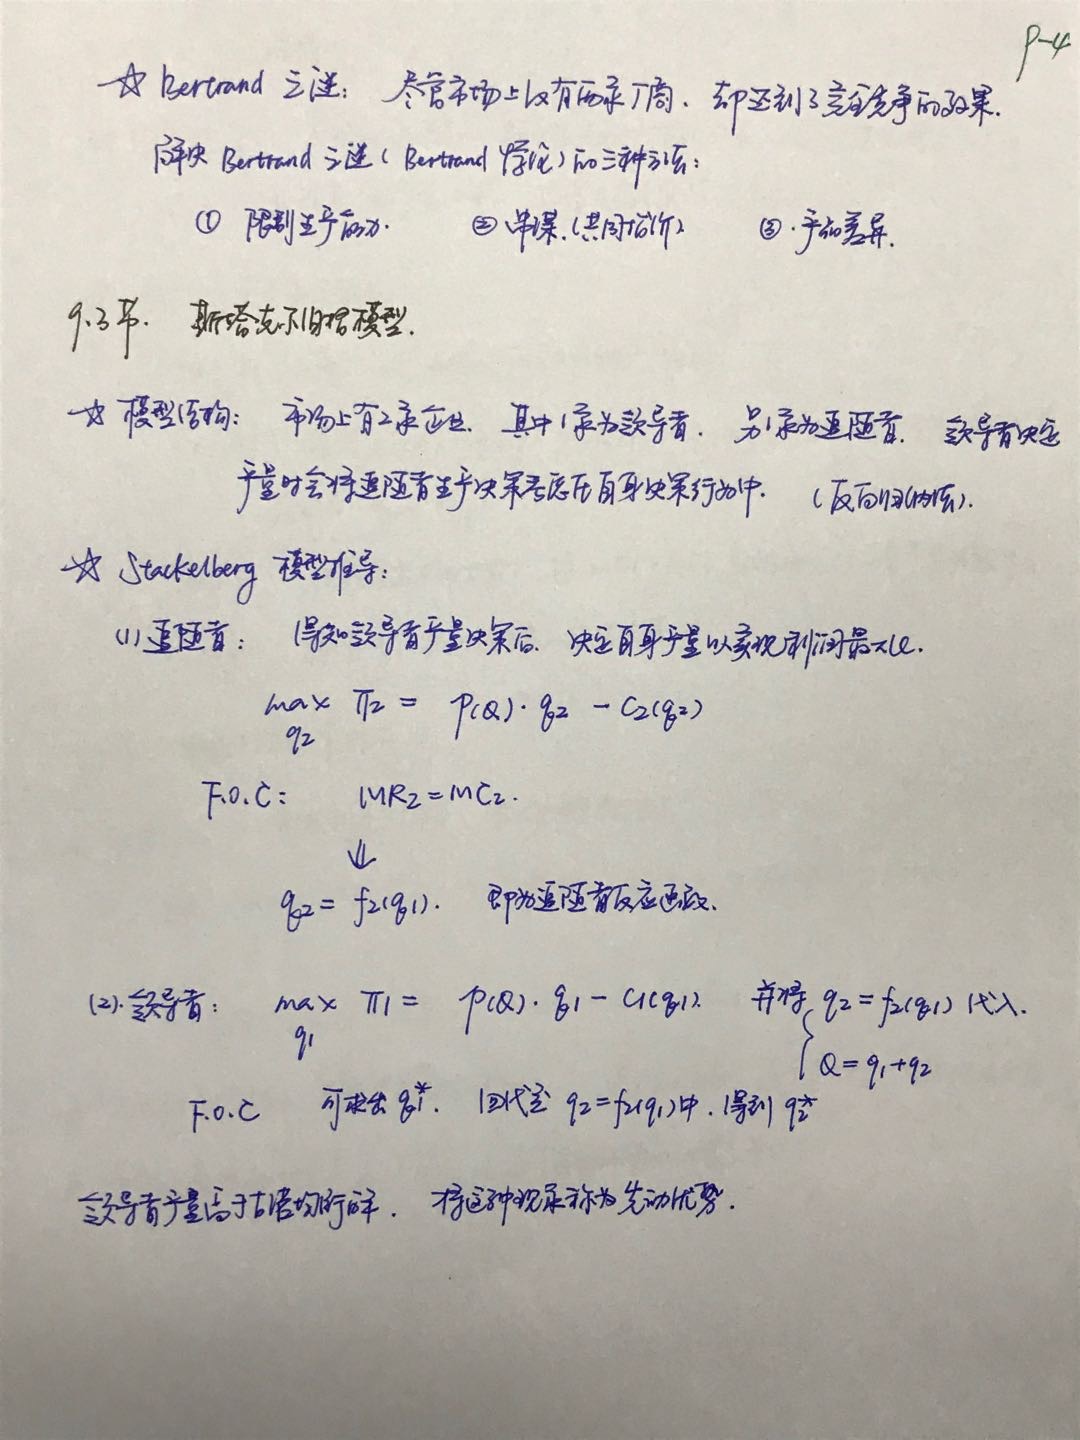 P-4
☆ Bertrand 之谜: 尽管市场上仅有两家厂商、却达到了完全竞争的效果.
解决 Bertrand 之谜 (Bertrand 悖论) 的三种方法:
① 限制生产能力. ② 串谋.(共同怕价) ③.产品差异.
9.3节. 斯塔克尔伯格模型.
☆ 模型结构: 市场上有2家企业. 其中1家为领导者. 另1家为追随者. 领导者决定
产量时会将追随者生产决策考虑在自身决策行为中. (反向归纳法).
☆ Stackelberg 模型推导:
(1) 追随者: 得知领导者产量决策后. 决定自身产量以实现利润最大化.
max π2 = P(Q)·q2 - C2(q2)
q2
F.O.C: MR2=MC2.
↓
q2 = f2(q1). 即为追随者反应函数.
(2).领导者: max π1 = P(Q)·q1 - C1(q1). 并将 { q2 = f2(q1) 代入.
q1 Q = q1+q2
F.O.C 可求出 q1*. 回代至 q2=f2(q1)中. 得到 q2*
领导者产量高于古诺均衡解. 将这种现象称为先动优势.